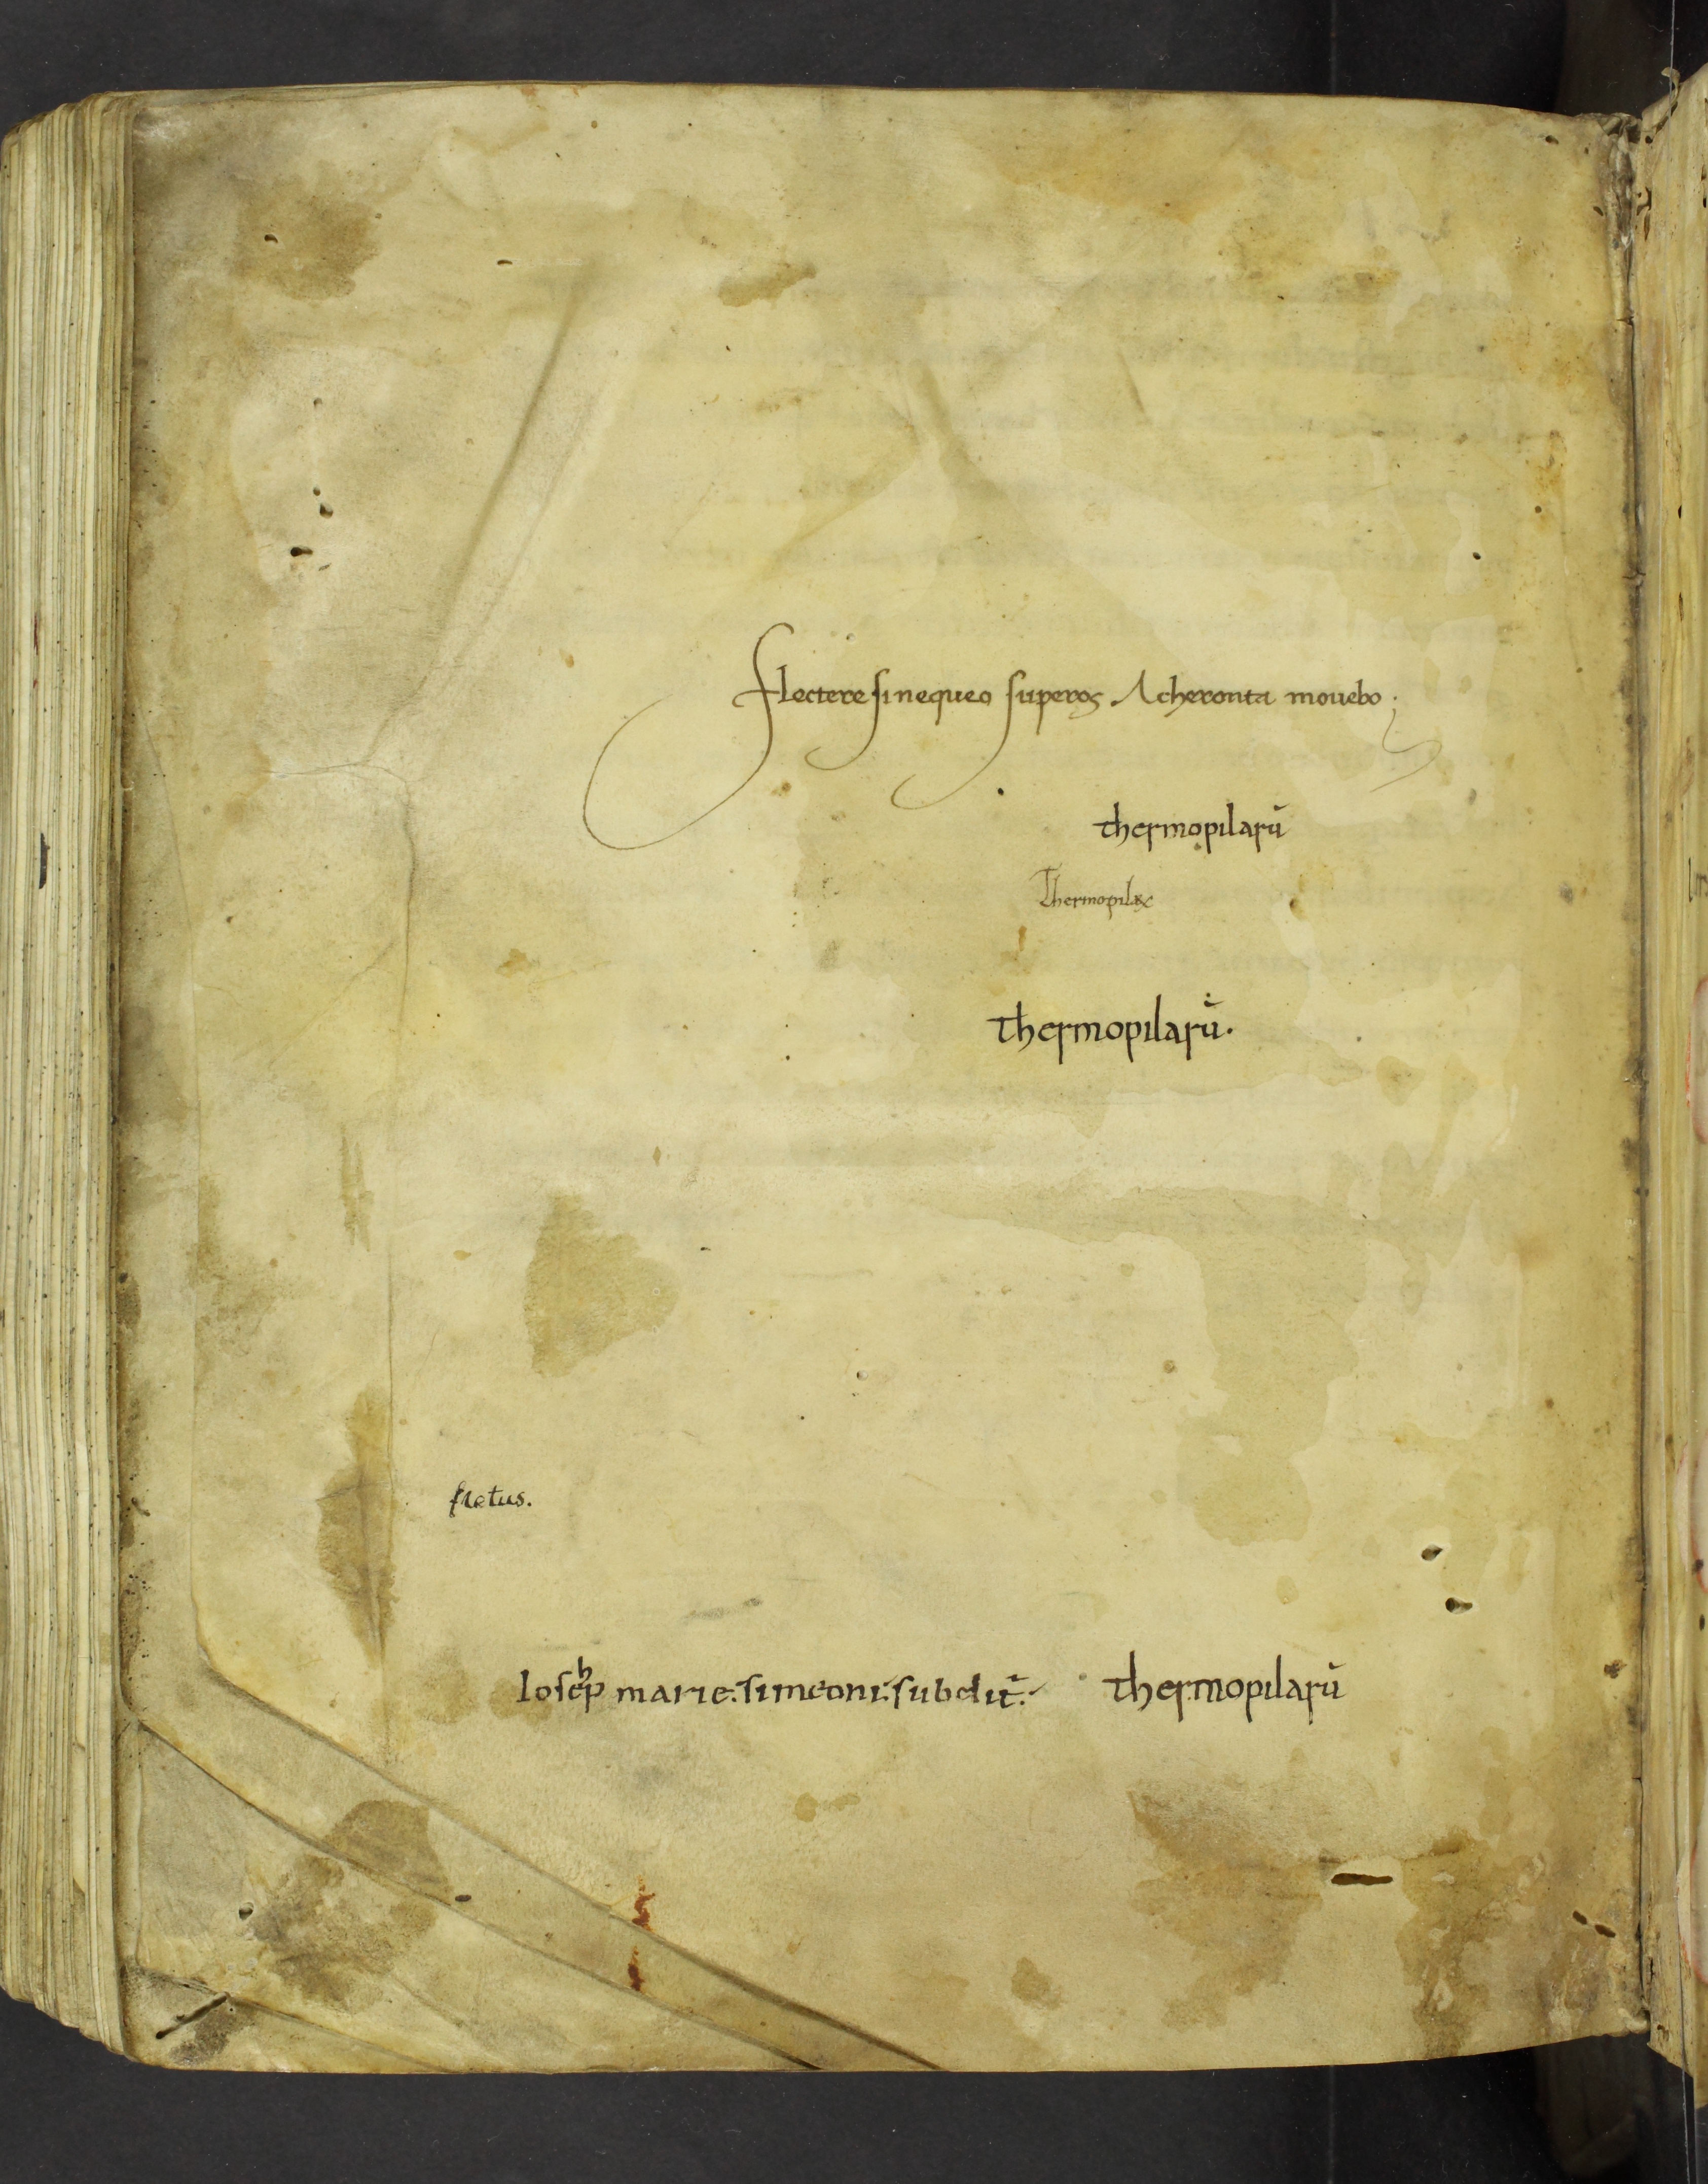 Flectere si nequeo superos. Acheronta movebo;
thermopilarū
Thermopilæ
thermopilarū.
fretus.
Iosep̄h marie: simeoni: subdit̄:- thermopilarū